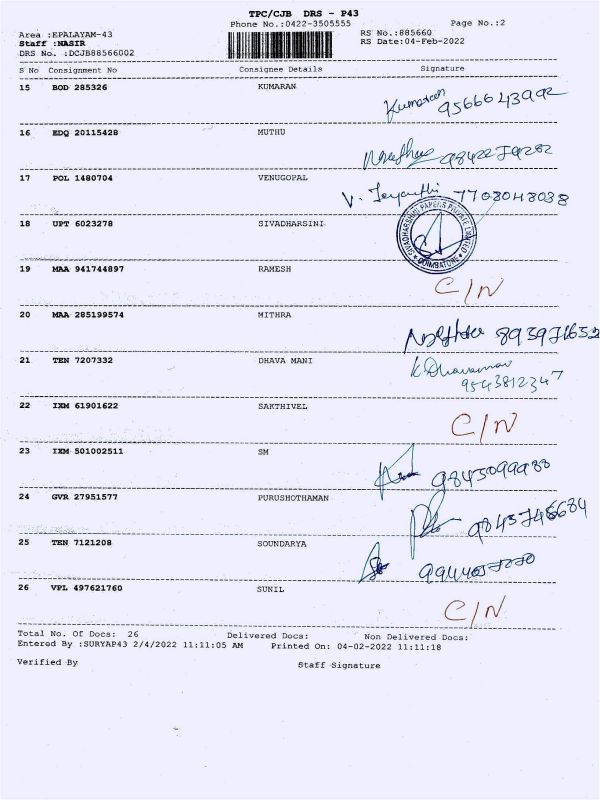 TPC/CJB DRS - P43
Phone No.:0422-3505555
Page No.:2
Area :EPALAYAM-43
RS No.:885660
Staff :NASIR
RS Date:04-Feb-2022
DRS No. :DCJB88566002
S No Consignment No Consignee Details Signature
15 BOD 285326 KUMARAN
Kumaran 9566643992
16 EDQ 20115428 MUTHU
17 POL 1480704 VENUGOPAL
V. Jeyanthi 7708048038
18 UPT 6023278 SIVADHARSINI
SIVADHARSHINI PAPERS PRIVATE LIMITED
COIMBATORE
19 MAA 941744897 RAMESH
C/N
20 MAA 285199574 MITHRA
21 TEN 7207332 DHAVA MANI
9543812347
22 IXM 61901622 SAKTHIVEL
C/N
23 IXM 501002511 SM
24 GVR 27951577 PURUSHOTHAMAN
25 TEN 7121208 SOUNDARYA
26 VPL 497621760 SUNIL
C/N
Total No. Of Docs: 26 Delivered Docs: Non Delivered Docs:
Entered By :SURYAP43 2/4/2022 11:11:05 AM Printed On: 04-02-2022 11:11:18
Verified By Staff Signature